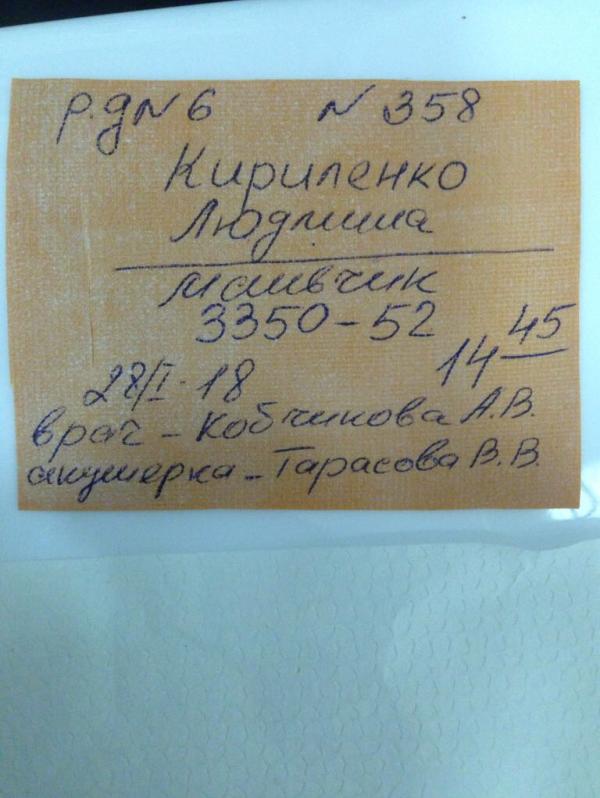 р.д N 6 N 358
Кириленко
Людмила
мальчик
3350-52
14 45
28/I-18
врач - Кобчикова А.В.
акушерка - Тарасова В.В.